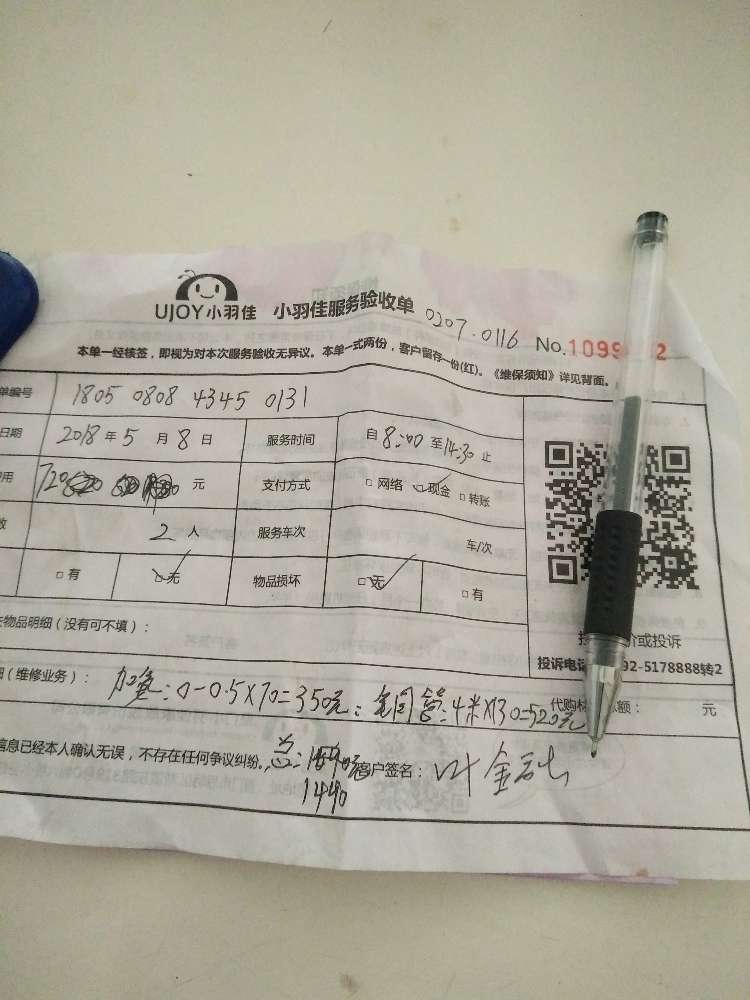 UJOY小羽佳 小羽佳服务验收单 0207.0116 No.1099 2
本单一经核签，即视为对本次服务验收无异议。本单一式两份，客户留存一份(红)。《维保须知》详见背面。
单编号 1805 0808 4345 0131
日期 2018年5月8日 服务时间 自8:00至14:30止
用 720 元 支付方式 □网络 ☑现金 □转账
数 2人 服务车次 车/次
□有 ☑无 物品损坏 ☑无 □有
物品明细（没有可不填）：
投 价或投诉
投诉电话 92-5178888转2
（维修业务）： 加氟：0-0.5X70=350元； 铜管：4米X130=520元
代购材 额： 元
信息已经本人确认无误，不存在任何争议纠纷。 总： 客户签名：叶金
1440